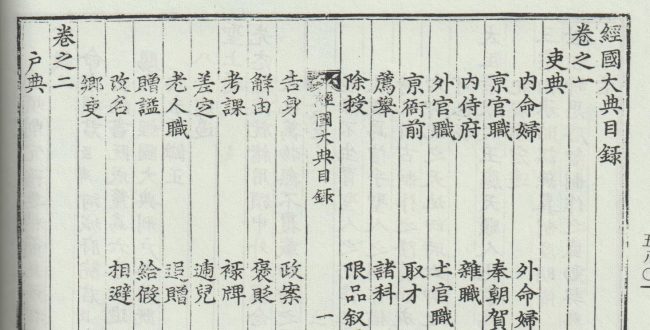 五八〇
經國大典目録
卷之一
吏典
內命婦 外命婦
京官職 奉朝賀
內侍府 雜職
外官職 土官職
京衙前 取才
薦舉 諸科
除授 限品叙
經國大典目録 一
告身 政案
解由 褒貶
考課 祿牌
差定 遞兒
老人職 追贈
贈諡 給假
改名 相避
鄉吏
卷之二
戶典